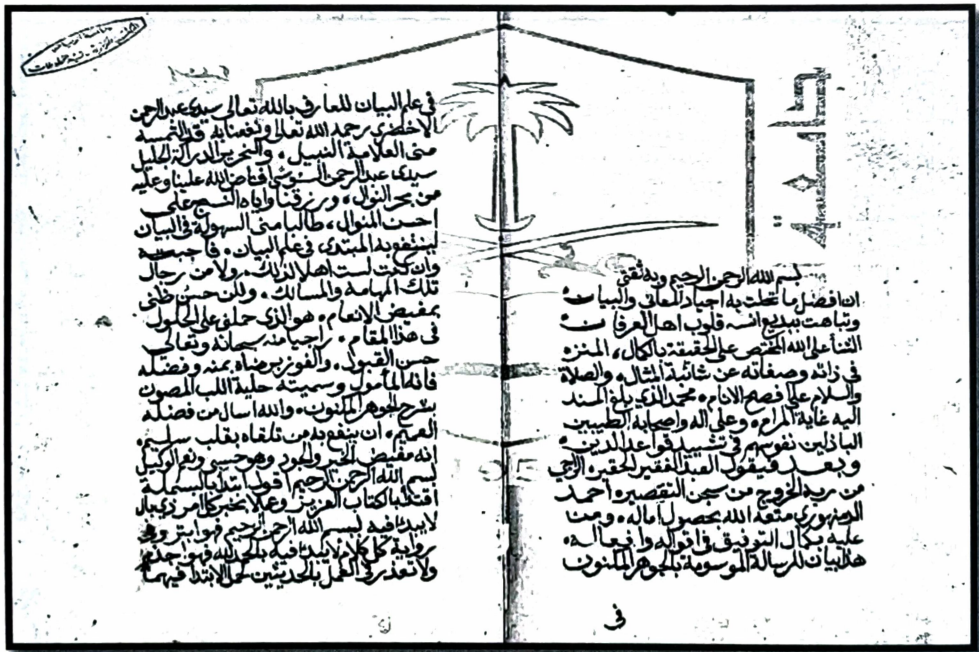 بسم الله الرحمن الرحيم وبه ثقتي
ان افضل ما تحلت به اجياد المعاني والبيان
وتباهت ببديع انسه قلوب اهل العرفان
الثنا على الله المختص على الحقيقة بالكمال، المنزه
في ذاته وصفاته عن شائبة المثال، والصلاة
والسلام على افصح الانام، محمد الذي بلغ المسند
اليه غاية المرام، وعلى اله واصحابه الطيبين
الباذلين نفوسهم في تشييد قواعد الدين،
وبعد فيقول العبد الفقير الحقير الراجي
من ربه الخروج من سجن التقصير احمد
الدمنهوري متعه الله بحصول اماله، ومن
عليه بكمال التوفيق في اقواله وافعاله،
هذا بيان للرسالة الموسومة بالجوهر المكنون
في
في علم البيان للعارف بالله تعالى سيدي عبد الرحمن
الاخضري رحمه الله تعالى ونفعنا به قد التمسه
مني العلامة النبيل، والنحرير الدراكة الجليل
سيدي عبد الرحمن افاض الله علينا وعليه
من بحر النوال، ورزقنا واياه النسج على
احسن المنوال، طالبا مني السهولة في البيان
لينتفع به المبتدي في علم البيان، فاجبته
وان كنت لست اهلا لذلك، ولا من رجال
تلك المهامه والمسالك، ولكن حسن ظني
بمفيض الانعام، هو الذي حملني على الحلول
في هذا المقام، راجيا منه سبحانه وتعالى
حسن القبول، والفوز برضاه بمنه وفضله
فانه المأمول وسميته حلية اللب المصون
بشرح الجوهر المكنون، والله اسال من فضله
العميم، ان ينفع به من تلقاه بقلب سليم،
انه مفيض الخير والجود وهو حسبي ونعم الوكيل
بسم الله الرحمن الرحيم اقول ابتدا بالبسملة
اقتدا بالكتاب العزيز وعملا بخبر كل امر ذي بال
لا يبدا فيه ببسم الله الرحمن الرحيم فهو ابتر وفي
رواية كل كلام لا يبدا فيه بالحمد لله فهو اجذم
ولا تعذر في العمل بالحديثين لحمل الابتدا فيهما